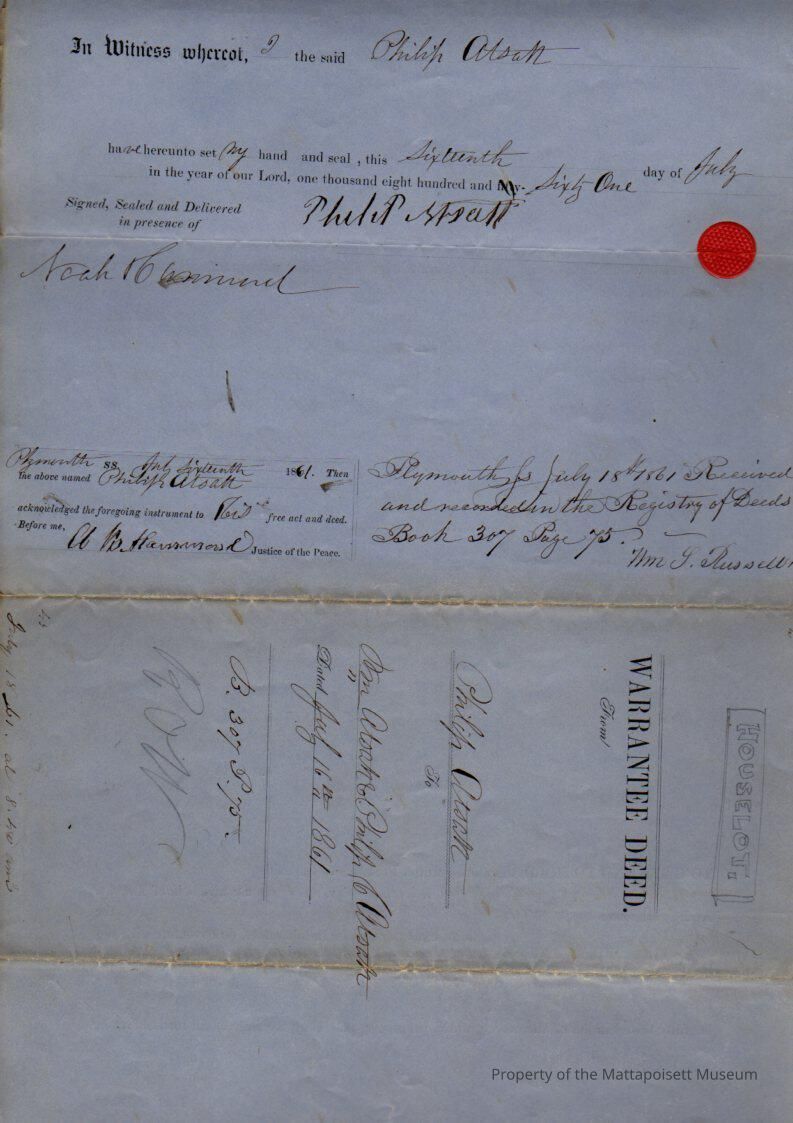 In Witness whereof, I the said Philip Atsatt
have hereunto set my hand and seal, this Sixteenth day of July
in the year of our Lord, one thousand eight hundred and fifty- Sixty One
Signed, Sealed and Delivered
in presence of
Philip Atsatt
Noah Hammond
Plymouth ss July Sixteenth 1861. Then
the above named Philip Atsatt
acknowledged the foregoing instrument to his free act and deed.
Before me,
A B Hammond Justice of the Peace.
Plymouth ss July 18th 1861 Received
and recorded in the Registry of Deeds
Book 307 Page 75.
Wm S. Russell
HOUSELOT.
WARRANTEE DEED.
From
Philip Atsatt
To
Wm Atsatt & Philip C Atsatt
Dated July 16th 1861
B. 307 P. 75.
July 18 61. at 8.40 am
Property of the Mattapoisett Museum